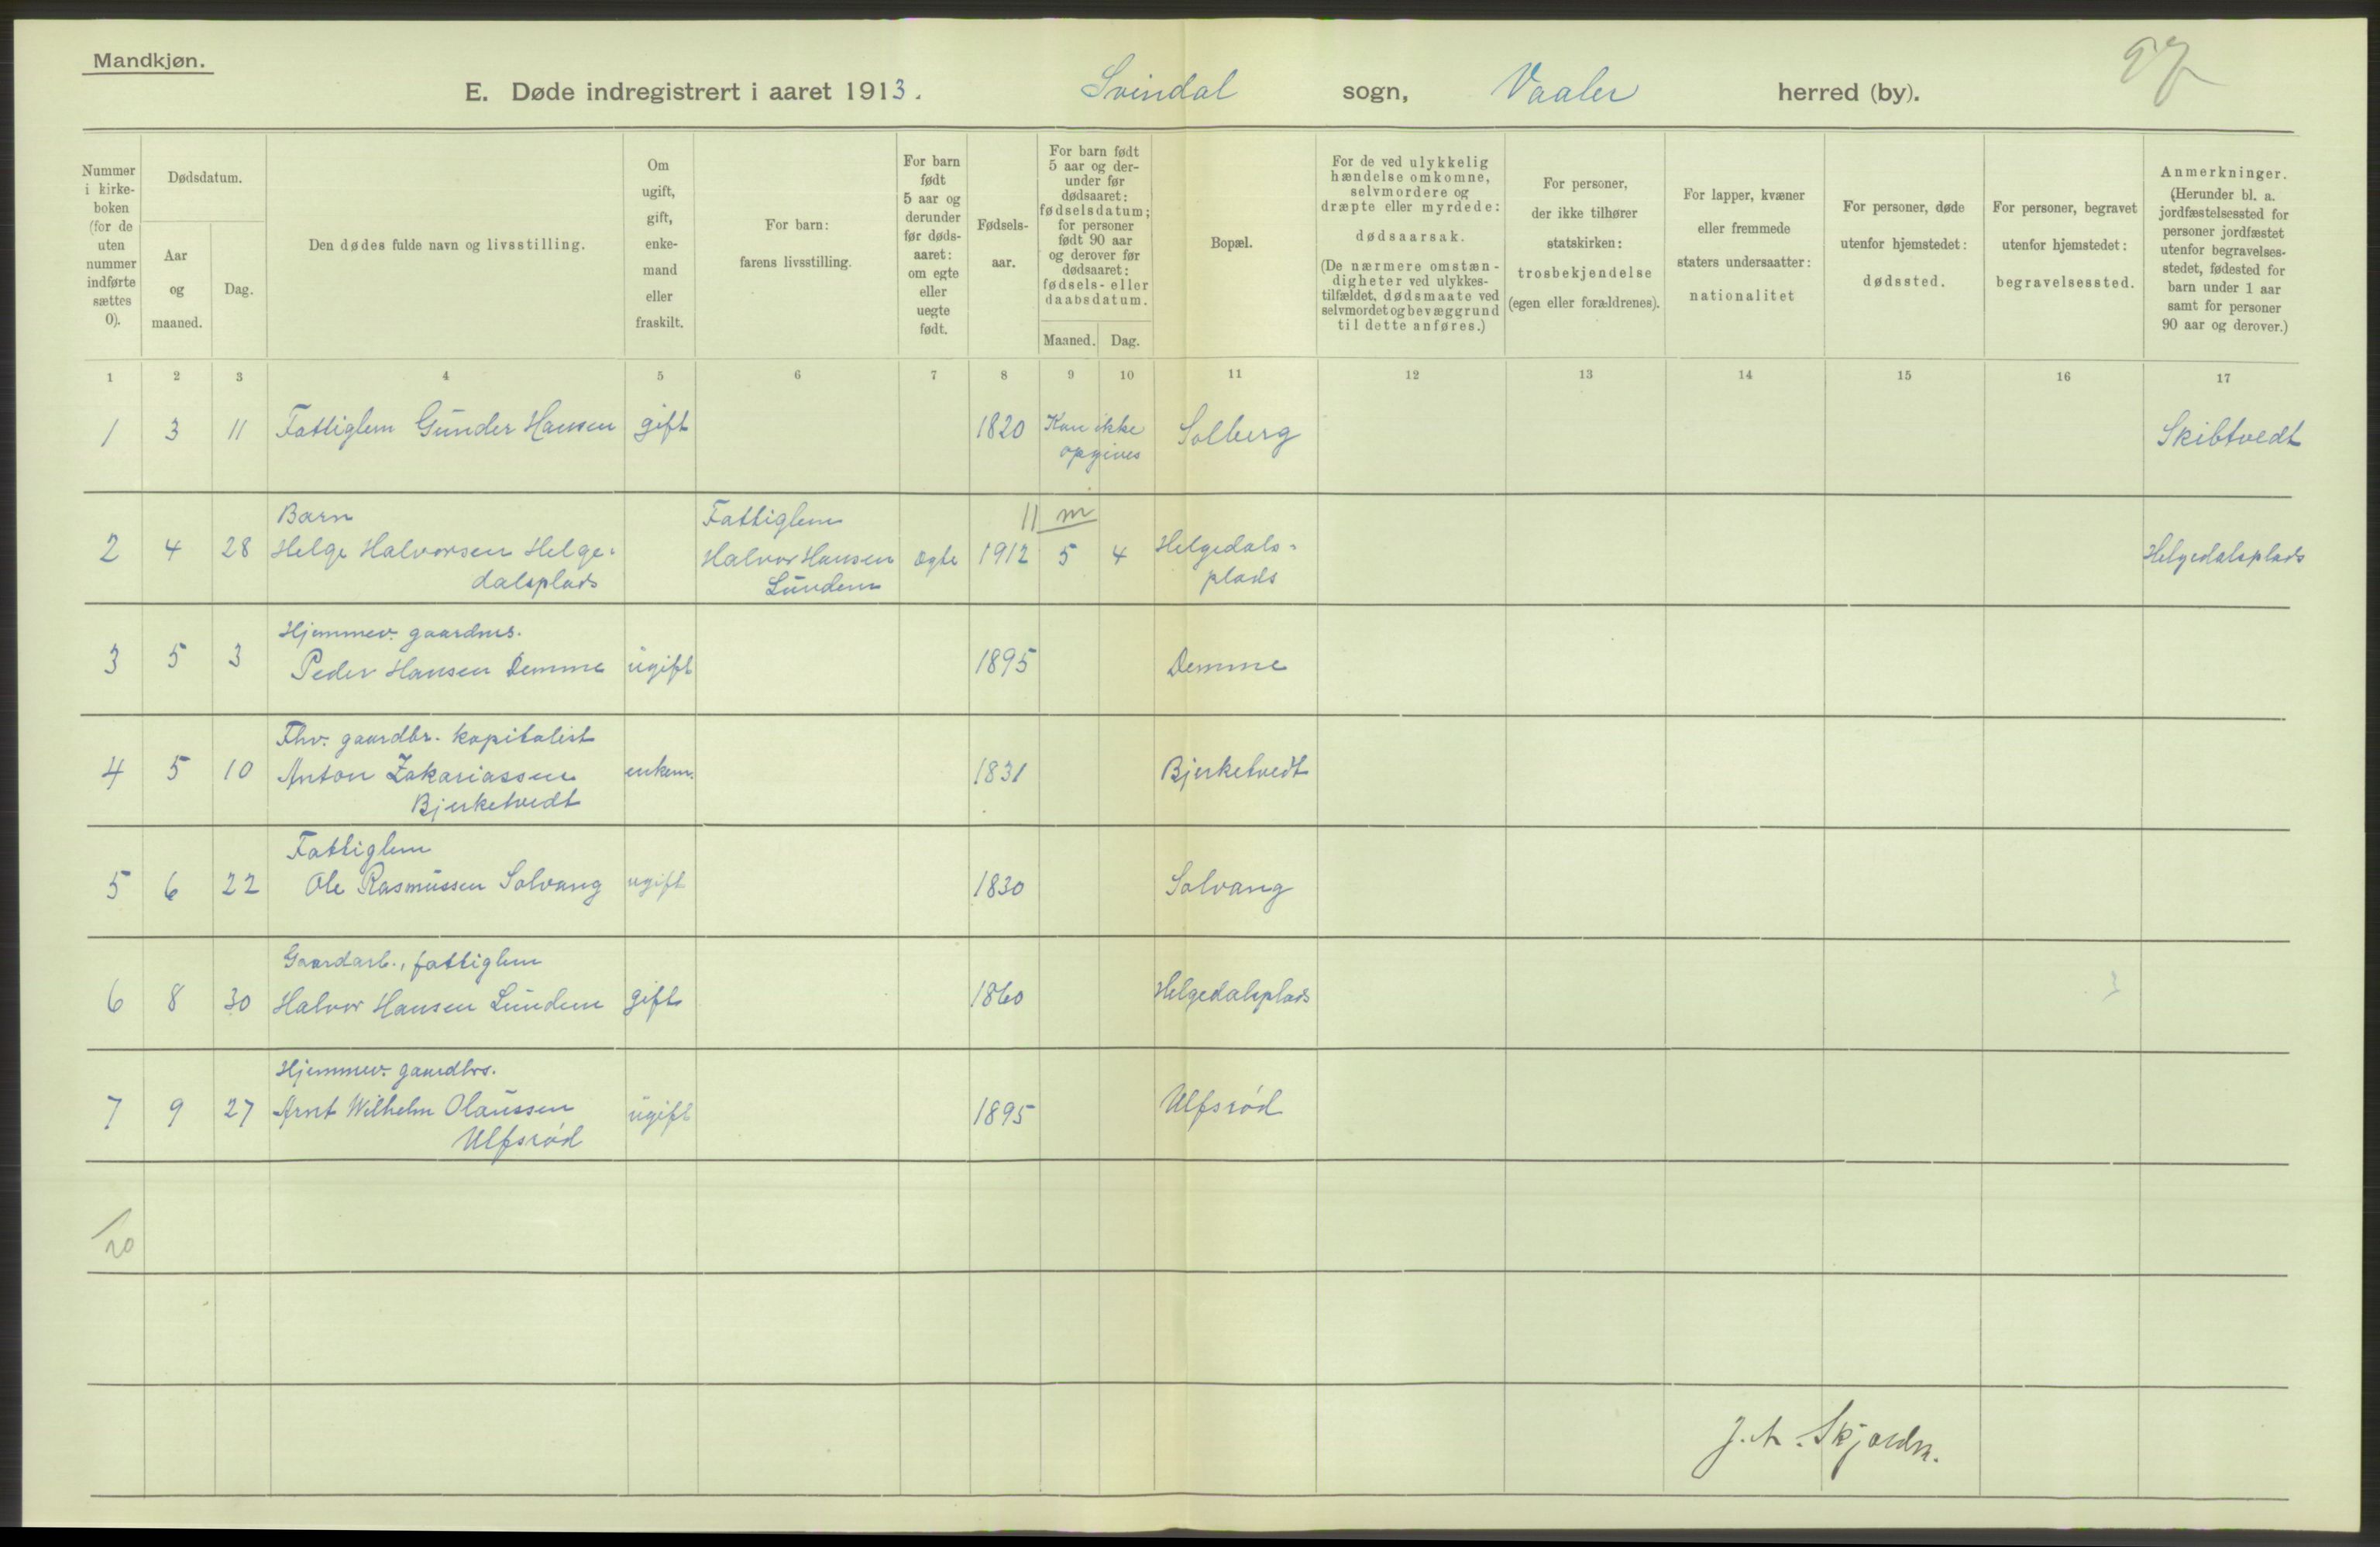 Mandkjøn.
E. Døde indregistrert i aaret 1913. Svindal sogn, Vaaler herred (by).
97
Nummer i kirke- boken (for de uten nummer indførte sættes 0).
Dødsdatum.
Aar og maaned.
Dag.
Den dødes fulde navn og livsstilling.
Om ugift, gift, enke- mand eller fraskilt.
For barn: farens livsstilling.
For barn født 5 aar og derunder før døds- aaret: om egte eller uegte født.
Fødsels- aar.
For barn født 5 aar og der- under før dødsaaret: fødselsdatum; for personer født 90 aar og derover før dødsaaret: fødsels- eller daabsdatum.
Maaned. Dag.
Bopæl.
For de ved ulykkelig hændelse omkomne, selvmordere og dræpte eller myrdede: dødsaarsak. (De nærmere omstæn- digheter ved ulykkes- tilfældet, dødsmaate ved selvmordet og bevæggrund til dette anføres.)
For personer, der ikke tilhører statskirken: trosbekjendelse (egen eller forældrenes).
For lapper, kvæner eller fremmede staters undersaatter: nationalitet
For personer, døde utenfor hjemstedet: dødssted.
For personer, begravet utenfor hjemstedet: begravelsessted.
Anmerkninger. (Herunder bl. a. jordfæstelsessted for personer jordfæstet utenfor begravelses- stedet, fødested for barn under 1 aar samt for personer 90 aar og derover.)
1 2 3 4 5 6 7 8 9 10 11 12 13 14 15 16 17
1 3 11 Fattiglem Gunder Hansen gift 1820 Kan ikke Solberg Skibtvedt
opgives
Barn Fattiglem 11 m
2 4 28 Helge Halvorsen Helge- Halvor Hansen ægte 1912 5 4 Helgedals- Helgedalsplads
dalsplads Lundem plads
Hjemmev. gaardbrs.
3 5 3 Peder Hansen Demme ugift 1895 Demme
Fhv. gaardbr. kapitalist
4 5 10 Anton Zakariassen enkem. 1831 Bjerketvedt
Bjerketvedt
Fattiglem
5 6 22 Ole Rasmussen Solvang ugift 1830 Solvang
Gaardarb., fattiglem
6 8 30 Halvor Hansen Lundem gift 1860 Helgedalsplads
3
Hjemmev. gaardbrs.
7 9 27 Arnt Wilhelm Olaussen ugift 1895 Ulfsrød
Ulfsrød
/20